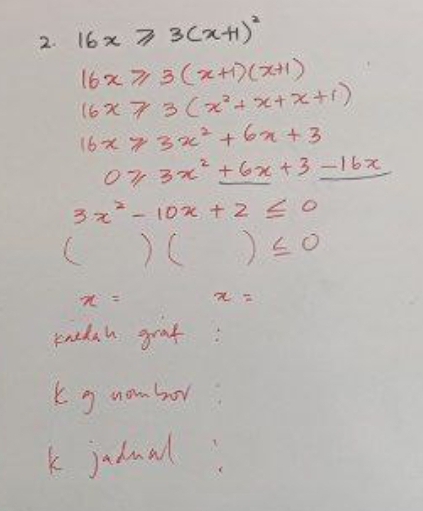 2. 16x ⩾ 3(x+1)²
16x ⩾ 3(x+1)(x+1)
16x ⩾ 3(x²+x+x+1)
16x ⩾ 3x² + 6x + 3
0 ⩾ 3x² + 6x + 3 - 16x
3x² - 10x + 2 ≤ 0
( )( ) ≤ 0
x = x =
kaedah graf :
k g nombor :
k jadual :